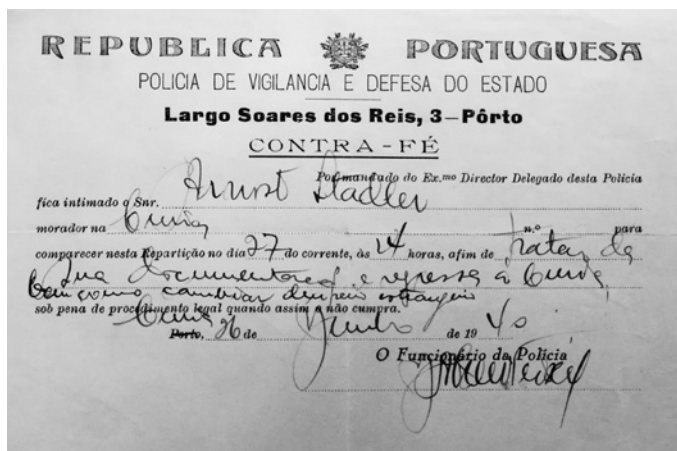 REPUBLICA PORTUGUESA
POLICIA DE VIGILANCIA E DEFESA DO ESTADO
Largo Soares dos Reis, 3—Pôrto
CONTRA-FÉ
Por mandado do Ex.mo Director Delegado desta Policia
fica intimado o Snr. Ernst Stadler
morador na Curia n.º para
comparecer nesta Repartição no dia 27 do corrente, às 14 horas, afim de tratar da
sua e regresso à Curia,
bem como cambiar dinheiro estrangeiro
sob pena de procedimento legal quando assim o não cumpra.
Curia Porto, 26 de Junho de 19 40
O Funcionário da Policia